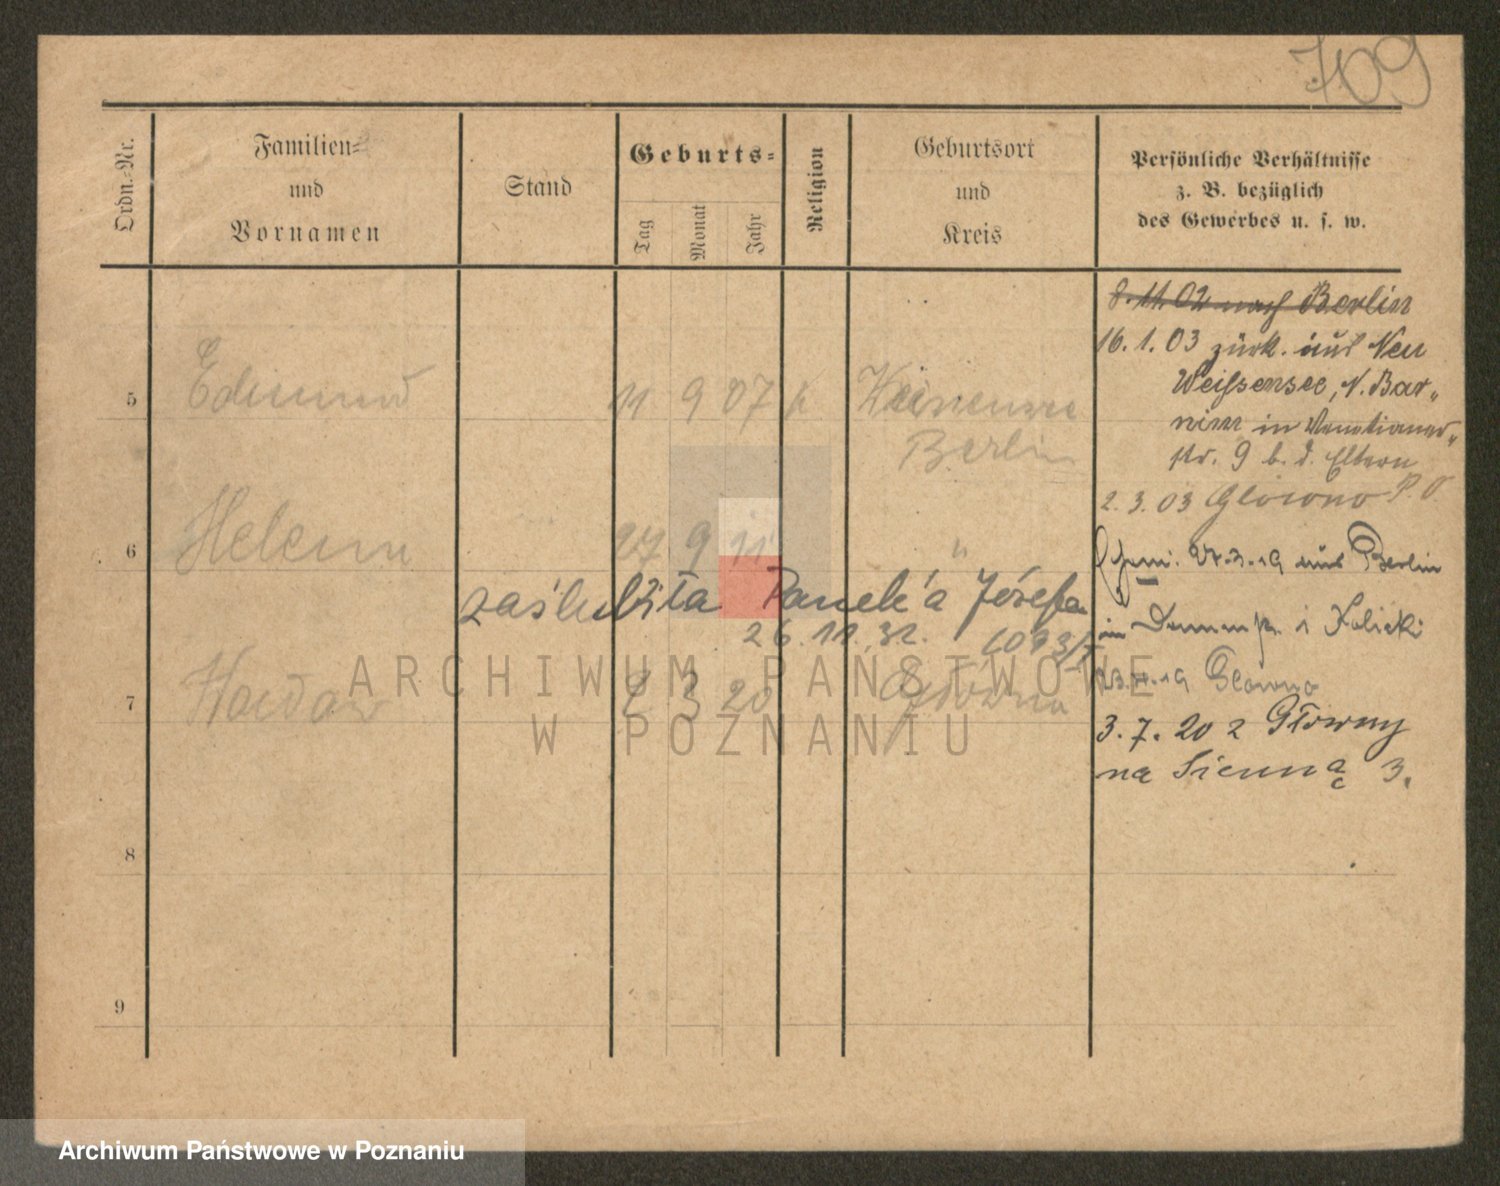 709
Ordn.-Nr.
Familien-
und
Vornamen
Stand
Geburts-
Tag
Monat
Jahr
Religion
Geburtsort
und
Kreis
Persönliche Verhältnisse
z. B. bezüglich
des Gewerbes u. s. w.
8. 11. 02 nach Berlin
16. 1. 03 zürk. aus Neu
Weißensee, N. Bar„
nim in Venetianer„
str. 9 b. d. Eltern
2. 3. 03 Glowno P. O
27. 3. 19 aus Berlin
in
i
19 Glowno
3. 7. 20 z Główny
na Sienną 3.
5 Edmund 11 9 07 k
Berlin
6 Helena 27 9 11 "
zaślubiła Panek'a Józefa
26. 11. 32. 1093/7
7 3 20 Główna
8
9
ARCHIWUM PAŃSTWOWE
W POZNANIU
Archiwum Państwowe w Poznaniu